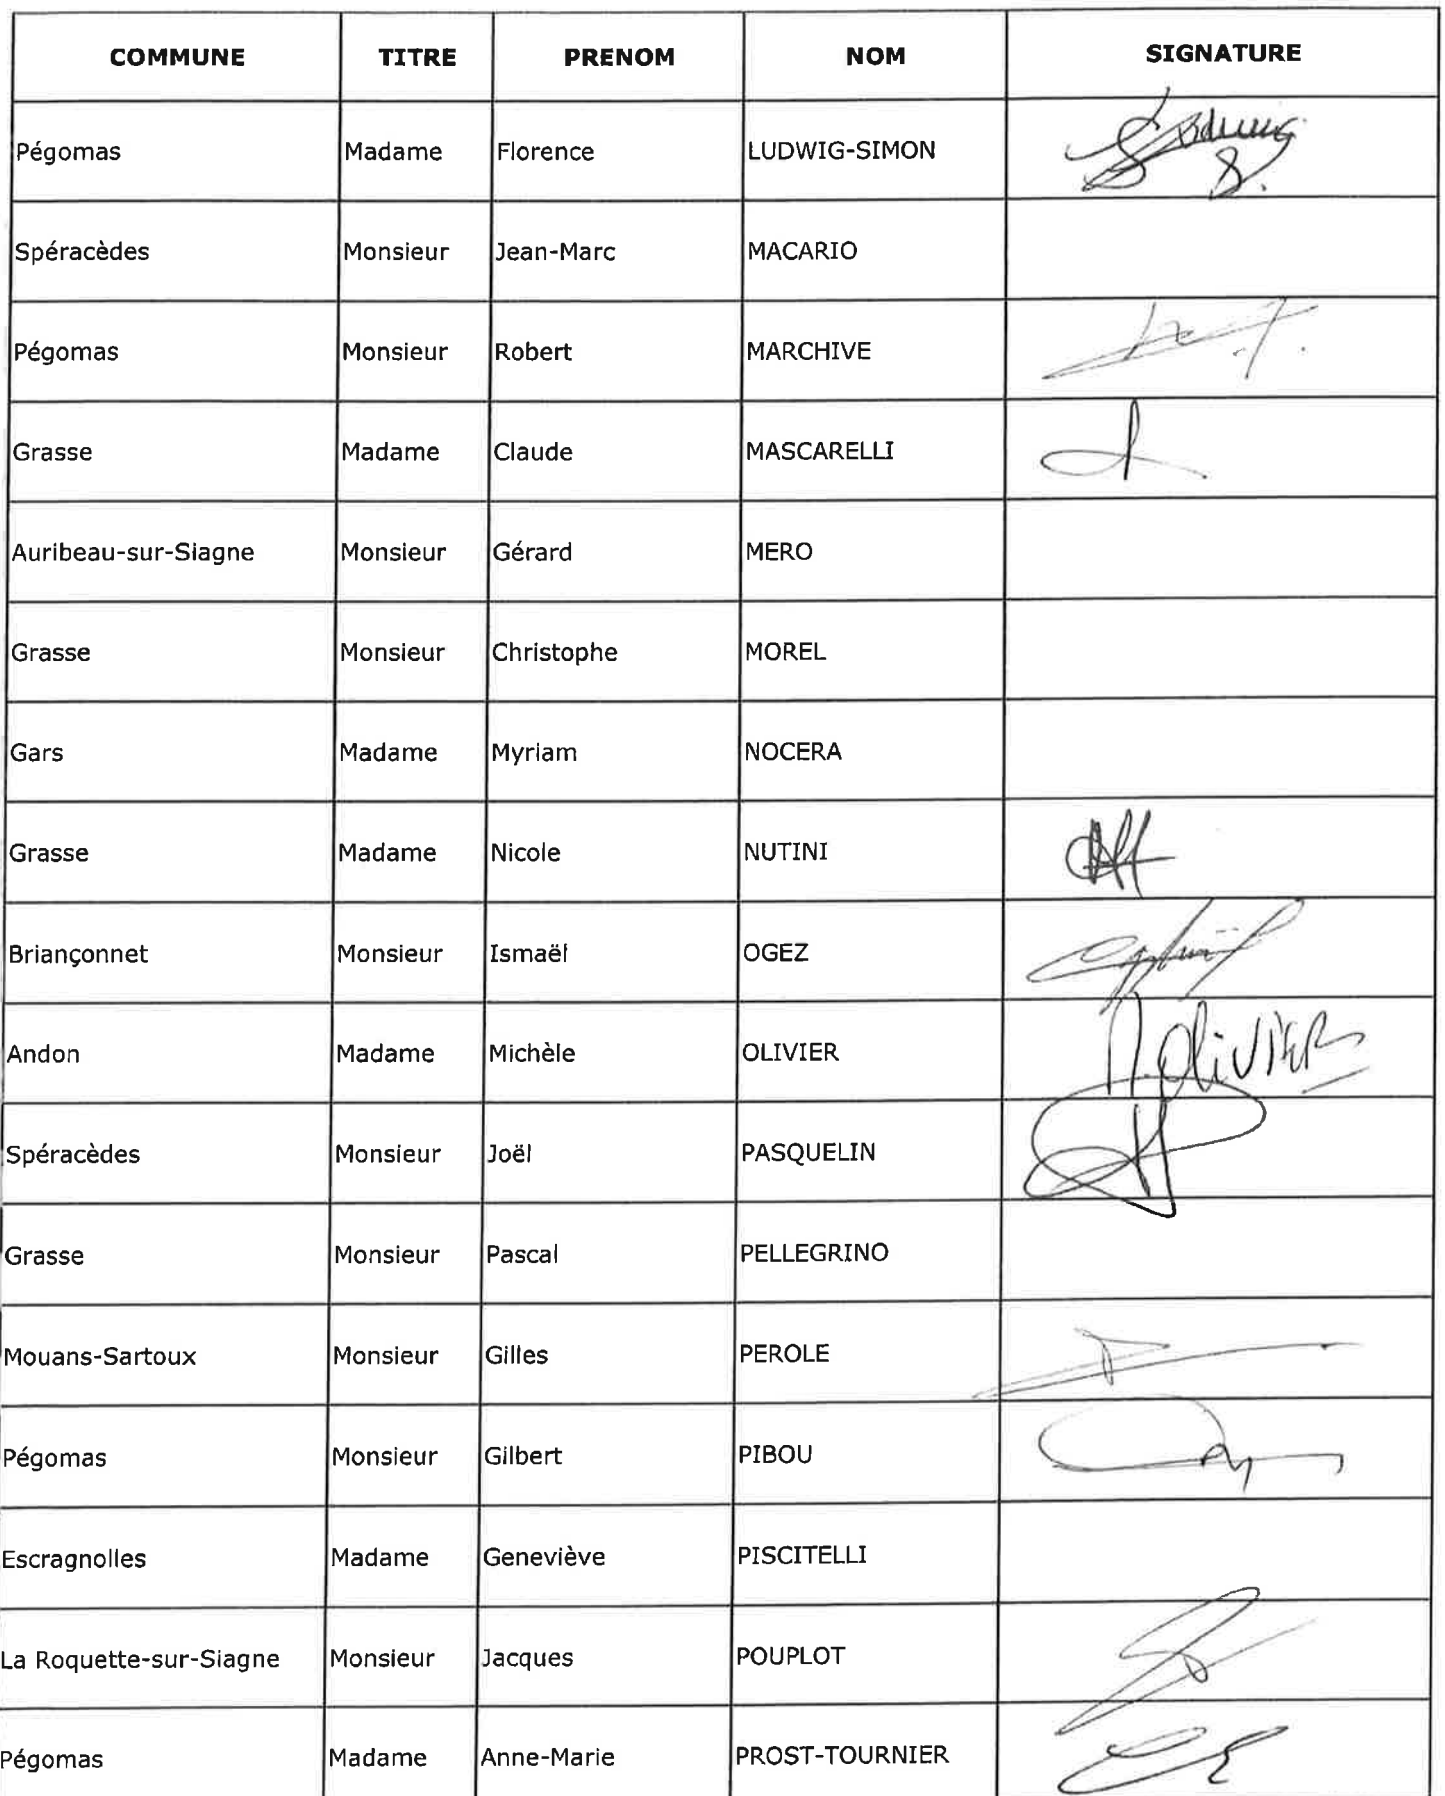 COMMUNE TITRE PRENOM NOM SIGNATURE
Pégomas Madame Florence LUDWIG-SIMON
Spéracèdes Monsieur Jean-Marc MACARIO
Pégomas Monsieur Robert MARCHIVE
Grasse Madame Claude MASCARELLI
Auribeau-sur-Siagne Monsieur Gérard MERO
Grasse Monsieur Christophe MOREL
Gars Madame Myriam NOCERA
Grasse Madame Nicole NUTINI
Briançonnet Monsieur Ismaël OGEZ
Andon Madame Michèle OLIVIER M. OLIVIER
Spéracèdes Monsieur Joël PASQUELIN
Grasse Monsieur Pascal PELLEGRINO
Mouans-Sartoux Monsieur Gilles PEROLE
Pégomas Monsieur Gilbert PIBOU
Escragnolles Madame Geneviève PISCITELLI
La Roquette-sur-Siagne Monsieur Jacques POUPLOT
Pégomas Madame Anne-Marie PROST-TOURNIER